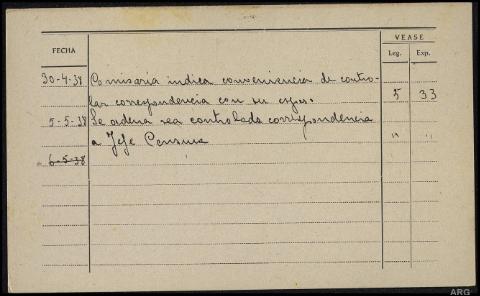 FECHA
VEASE
Leg. Exp.
30-4-38 Comisaría indica conveniencia de contro-
lar correspondencia con su espos. 5 33
5-5-38 Se ordena sea controlada correspondencia " "
a Jefe Censura
6-5-38
ARG